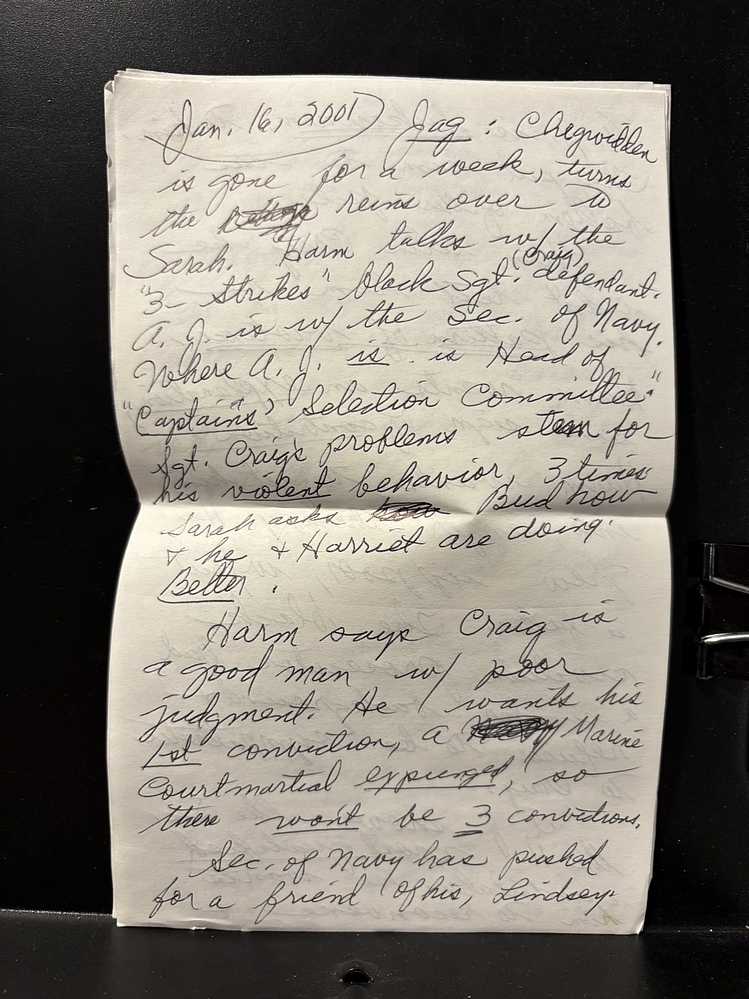 Jan. 16, 2001) Jag : Chegwidden
is gone for a week, turns
the reins over to
Sarah. Harm talks w/ the
"3- Strikes" black Sgt. (Craig) defendant.
A. J. is w/ the Sec. of Navy.
Where A. J. is is Head of
"Captains' Selection Committee"
Sgt. Craig's problems stem for
his violent behavior, 3 times
Sarah asks Bud how
& he & Harriet are doing.
Better.
Harm says Craig is
a good man w/ poor
judgment. He wants his
1st conviction, a Marine
Courtmartial expunged, so
there won't be 3 convictions.
Sec. of Navy has pushed
for a friend of his, Lindsey